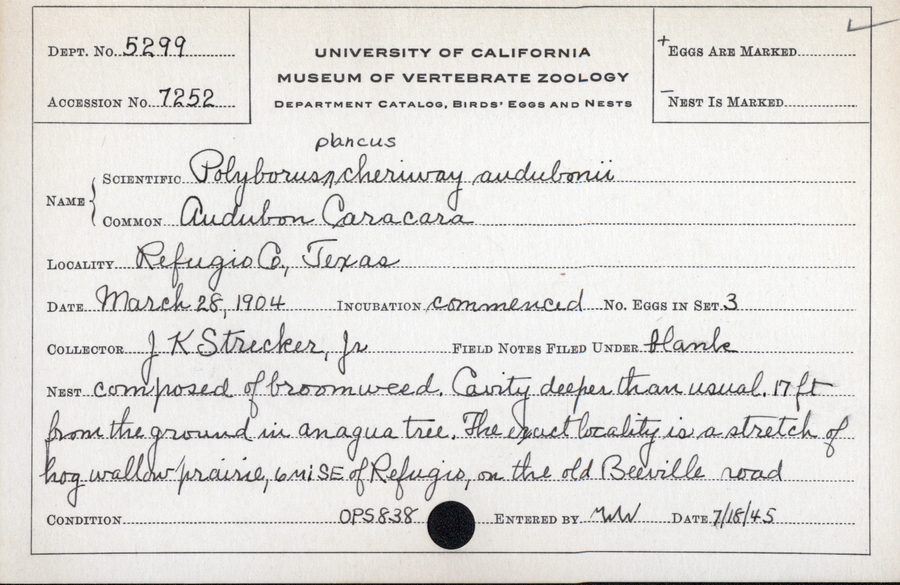 DEPT. No. 5299
ACCESSION No. 7252
UNIVERSITY OF CALIFORNIA
MUSEUM OF VERTEBRATE ZOOLOGY
DEPARTMENT CATALOG, BIRDS' EGGS AND NESTS
+EGGS ARE MARKED
–NEST IS MARKED
plancus
NAME { SCIENTIFIC Polyborus cheriway audubonii
COMMON Audubon Caracara
LOCALITY Refugio Co., Texas
DATE March 28, 1904 INCUBATION commenced No. EGGS IN SET 3
COLLECTOR J K Strecker, Jr FIELD NOTES FILED UNDER blank
NEST composed of broomweed. Cavity deeper than usual. 17 ft
from the ground in anagua tree. The exact locality is a stretch of
hog wallow prairie, 6 mi SE of Refugio, on the old Beeville road
CONDITION OPS838 ENTERED BY WW DATE 7/18/45